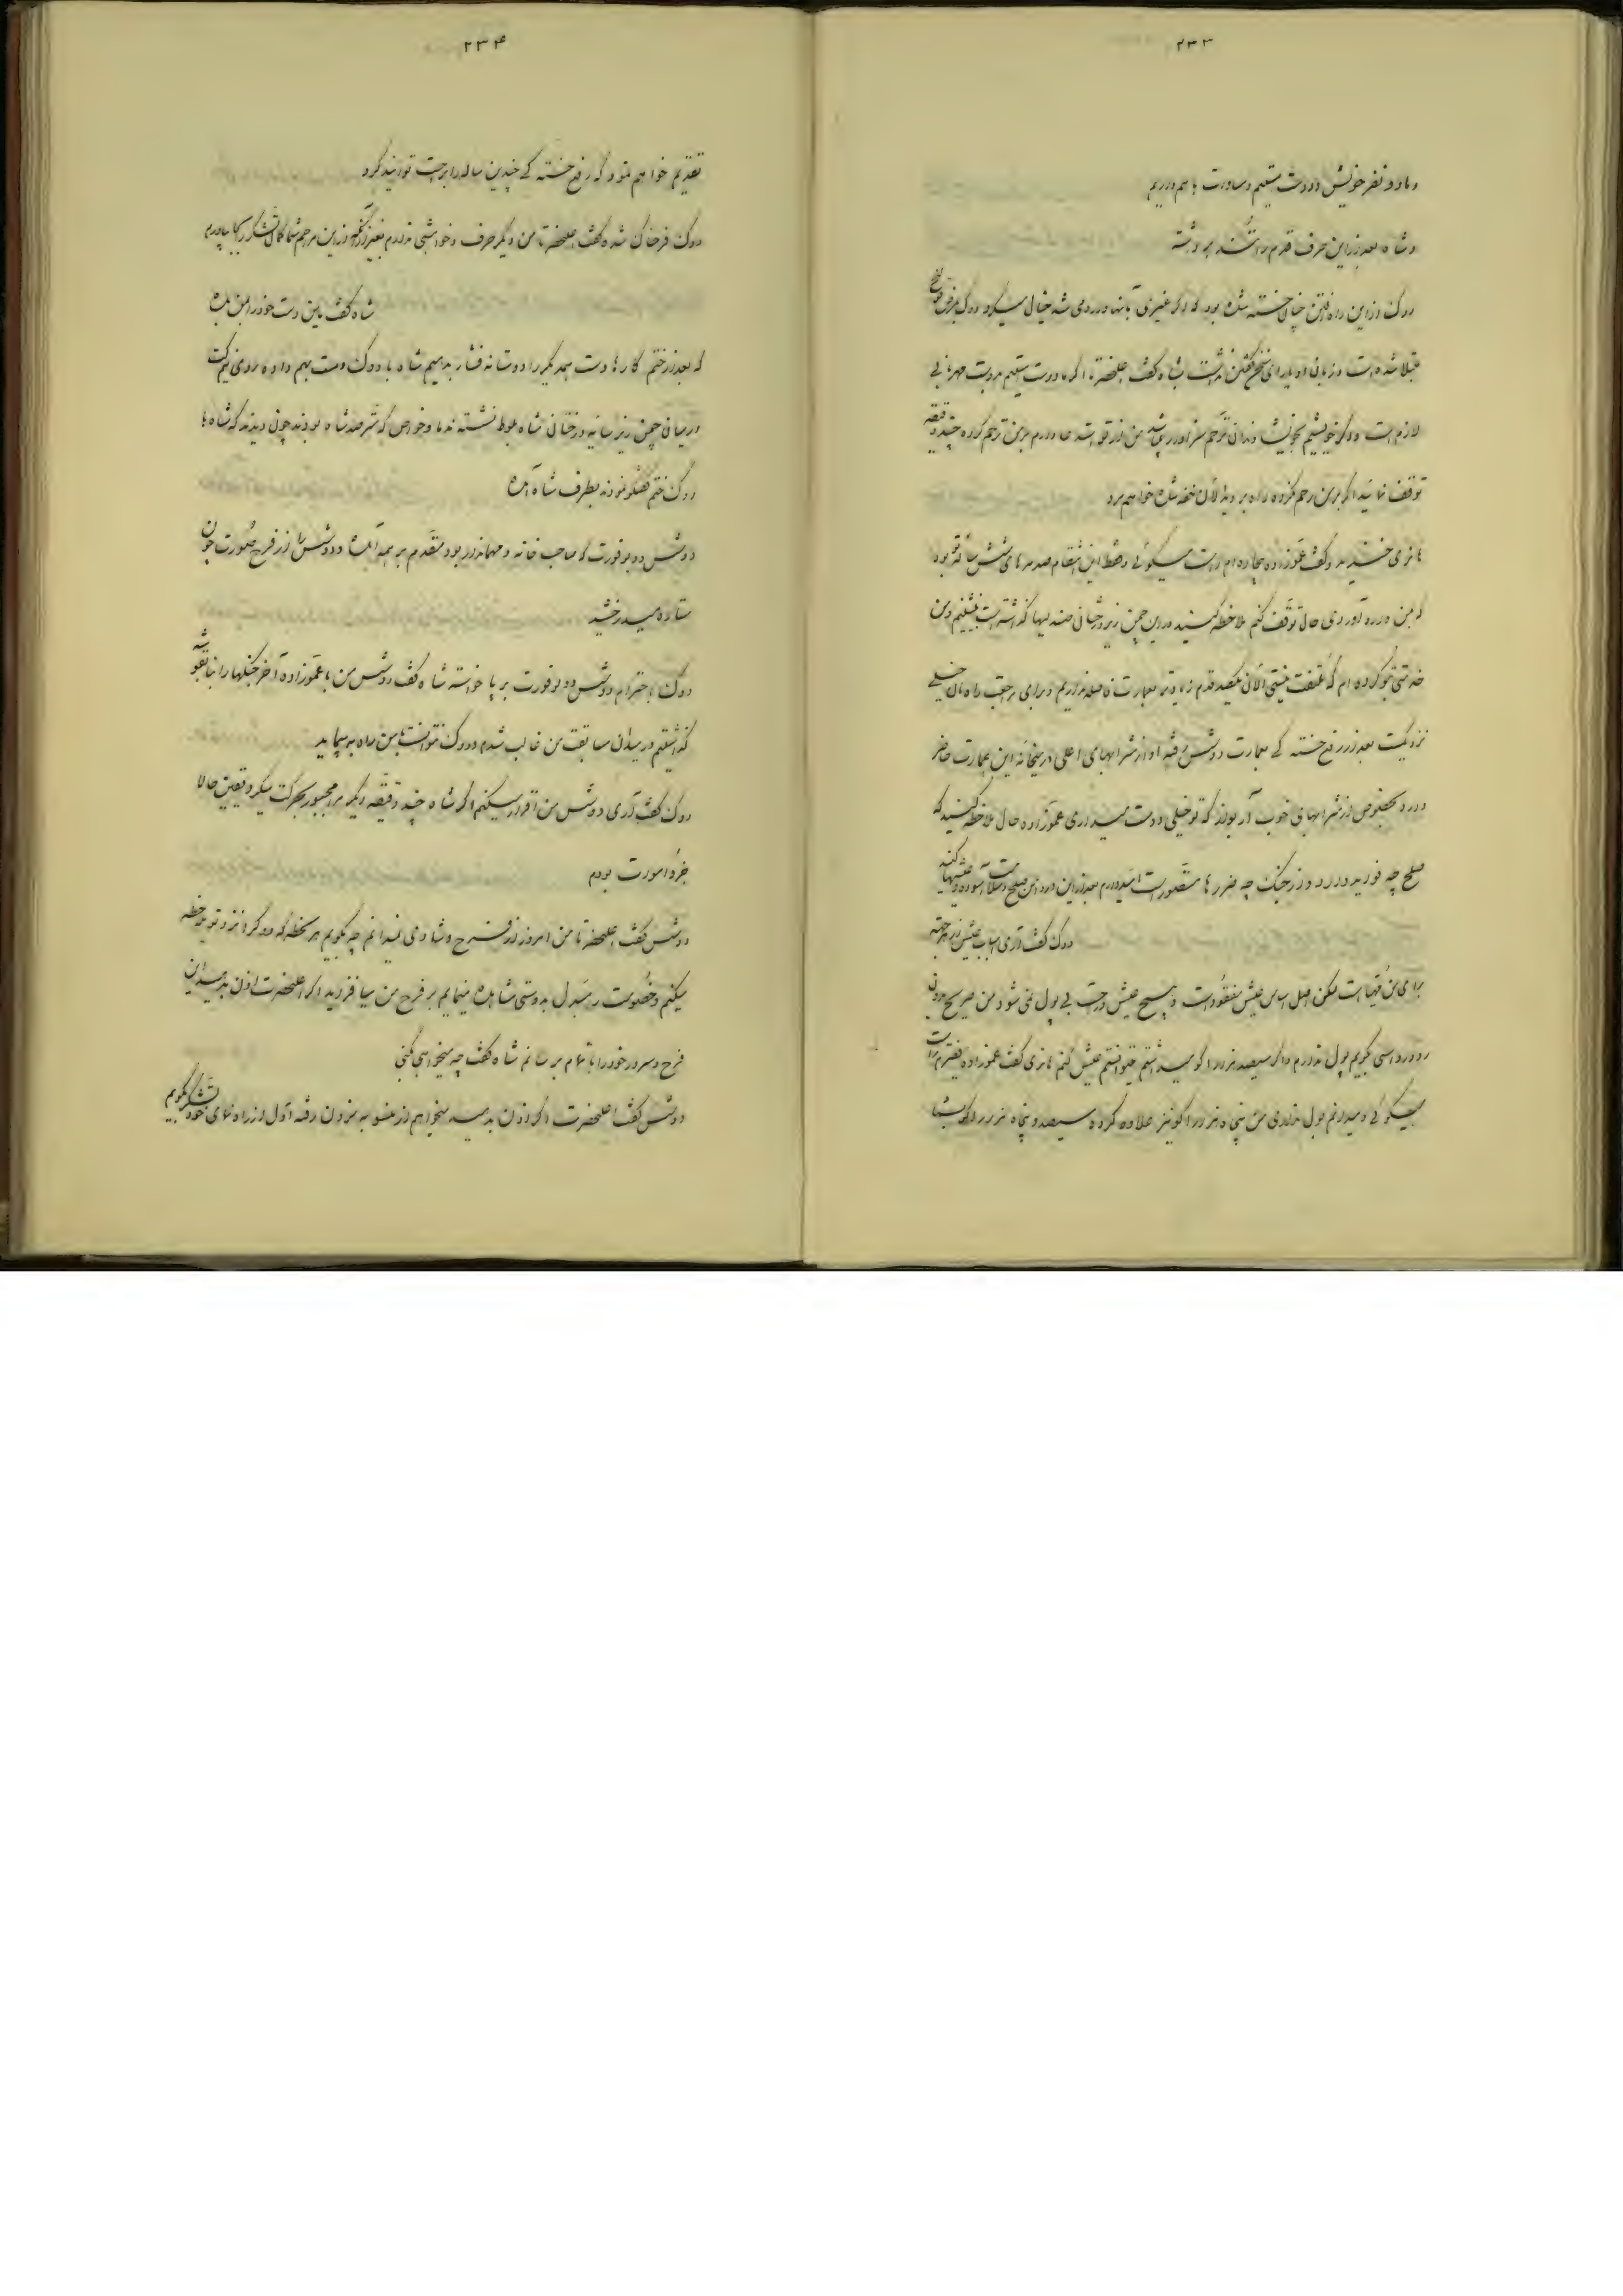 ۲۳۳
و ما دو نفر خویش و دوست مستقیم و مساوات با هم داریم
و شاه بعد از این حرف قدم را تند برداشته
دوک از این راه رفتن چنان خسته شده بود که اگر غیری بآنها وارد می شد خیال میکرد دوک بمرض
مبتلا شده است و زبان او یارای سخن گفتن نداشت گفت اعلیحضرتا اگر ما دوست مستقیم مروت مهربانی
لازم است و اگر خویشیم ترحم سزاوار من از قوه ترحم کرده چند دقیقه
توقف نمائید اگر بر من رحم نکرده راه بروید الآن خفه شده خواهم مرد
هانری خندید و گفت عموزاده بیچاره ام راست میگوئی و فقط این انتقام صدمه های شش ساله بود
که بمن وارد آوردی حالا توقف کنم ملاحظه کنید در این چمن زیر درختان صندلیها گذاشته است بنشینیم و من
الآن یکصد قدم زیادتر بعمارت فاصله نداریم و برای مراجعت راه مان خیلی
نزدیکست بعد از رفع خستگی بعمارت دوشس رفته او از شرابهای اعلی در میخانه این عمارت حاضر
دارد بخصوص از شرابهای خوب که تو خیلی دوست میداری عموزاده حال ملاحظه کنید که
صلح چه فوایدی دارد و از جنگ چه ضررها متصور است امیدوارم بعد از این
دوک گفت آری اسباب عیش از هر جهة
برای من مهیا است لکن اصل اساس عیش مفقود است و هیچ عیش و راحت بی پول نمی شود من صریح
و راستی بگویم پول ندارم و اگر سیصد هزار اکو میداشتم میتوانستم عیش کنم هانری گفت عموزاده
میگوئی و میدانم پول نداری من پنجاه هزار اکو نیز علاوه کرده سیصد و پنجاه هزار اکو بشما
۲۳۴
تقدیم خواهم نمود که رفع خستگی چندین ساله را براحت توانید کرد
دوک فرحناک شده گفت اعلیحضرتا من دیگر حرف و خواهشی ندارم بغیر از آنکه از این مرحم شما کمال تشکر را بجا بیاورم
شاه گفت ماین دست خود را بمن بده
که بعد از ختم کارها دست همدیگر را دوستانه فشار بدهیم شاه با دوک دست بهم داده روی نیمکت
در میان چمن زیر سایه درختان شاه بلوط نشسته ندما و خواص که مترصد شاه بودند چون دیدند که شاه با
دوک ختم گفتگو نموده بطرف شاه آمدند
دوشس دو بوفورت که صاحب خانه و مهماندار بود مقدم بر همه آمده و دوشس را از فرح صورت چون
ستاره میدرخشید
دوک باحترام دوشس دو بوفورت بر پا خواسته شاه گفت دوشس من با عموزاده آخر جنگها را
گذاشتیم در میدان مسابقت من غالب شدم و دوک نتوانست با من راه بپیماید
دوک گفت آری دوشس من اقرار میکنم اگر شاه چند دقیقه دیگر مرا مجبور بحرکت میکرد یقین حالا
جزو اموات بودم
دوشس گفت اعلیحضرتا من امروز از فرح و شادی نمیدانم چه بگویم هر لحظه که دوک را نزد تو ملاحظه
میکنم و خصومت را مبدل بدوستی مشاهده مینمایم بر فرح من میافزاید اگر اعلیحضرت اذن
فرح و سرور خود را باتمام برسانم شاه گفت چه میخواهی بکنی
دوشس گفت اعلیحضرت اگر اذن بدهید میخواهم از عفو به بیرون رفته اول از راه نمای خود تشکر گویم